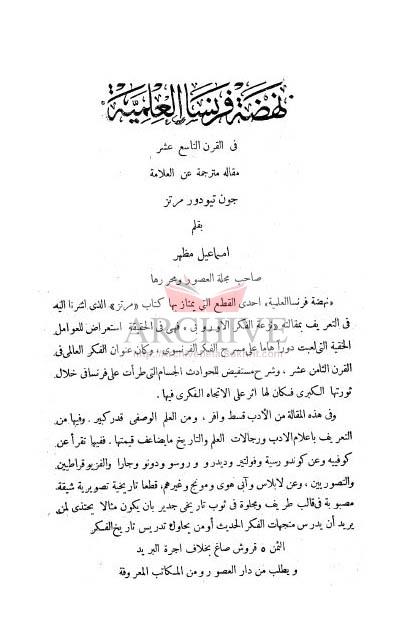 نهضة فرنسا العلمية
فى القرن التاسع عشر
مقاله مترجمة عن العلامة
جون تيودور مرتز
بقلم
اسماعيل مظهر
صاحب مجلة العصور ومحررها
«نهضة فرنسا العلمية» احدى القطع التى يمتاز بها كتاب «مرتز» الذى اشرنا اليه
فى التعريف بمقالته «نزعة الفكر الاوروبى» فهى فى الحقيقة استعراض للعوامل
الحقية التى لعبت دوراً هاما على مسرح الفكر الفرنسوى، وكان عنوان الفكر العالمى فى
القرن الثامن عشر، وشرح مستفيض للحوادث الجسام التى طرأت على فرنسا فى خلال
ثورتها الكبرى فكان لها اثر على الاتجاه الفكرى فيها.
وفى هذه المقالة من الأدب قسط وافر، ومن العلم الوصفى قدر كبير. وفيها من
التعريف باعلام الادب ورجالات العلم والتاريخ ما يضاعف قيمتها. ففيها تقرأ عن
كوفييه وعن كوندورسية وفولتير وديدرو وروسو ودونو وجارا والفزيوقراطيين
والتصوريين، وعن لابلاس وآبى هوى ومونج وغيرهم، قطعا تاريخية تصويرية شيقة
مصبوبة فى قالب طريف ومجلوة فى ثوب تاريخى جدير بان يكون مثالا يحتذى لمن
يريد أن يدرس منجهات الفكر الحديث أو من يحاول تدريس تاريخ الفكر
الثمن ٥ قروش صاغ بخلاف اجرة البريد
ويطلب من دار العصور ومن المكاتب المعروفة
ARCHIVE